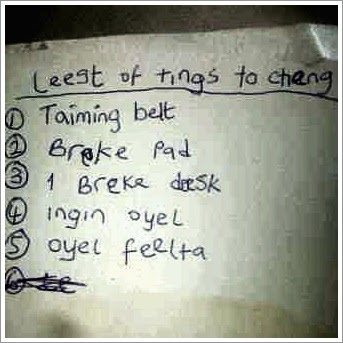 Leest of tings to cheng
① Taiming belt
② Breke pad
③ 1 Breke deesk
④ ingin oyel
⑤ oyel feelta